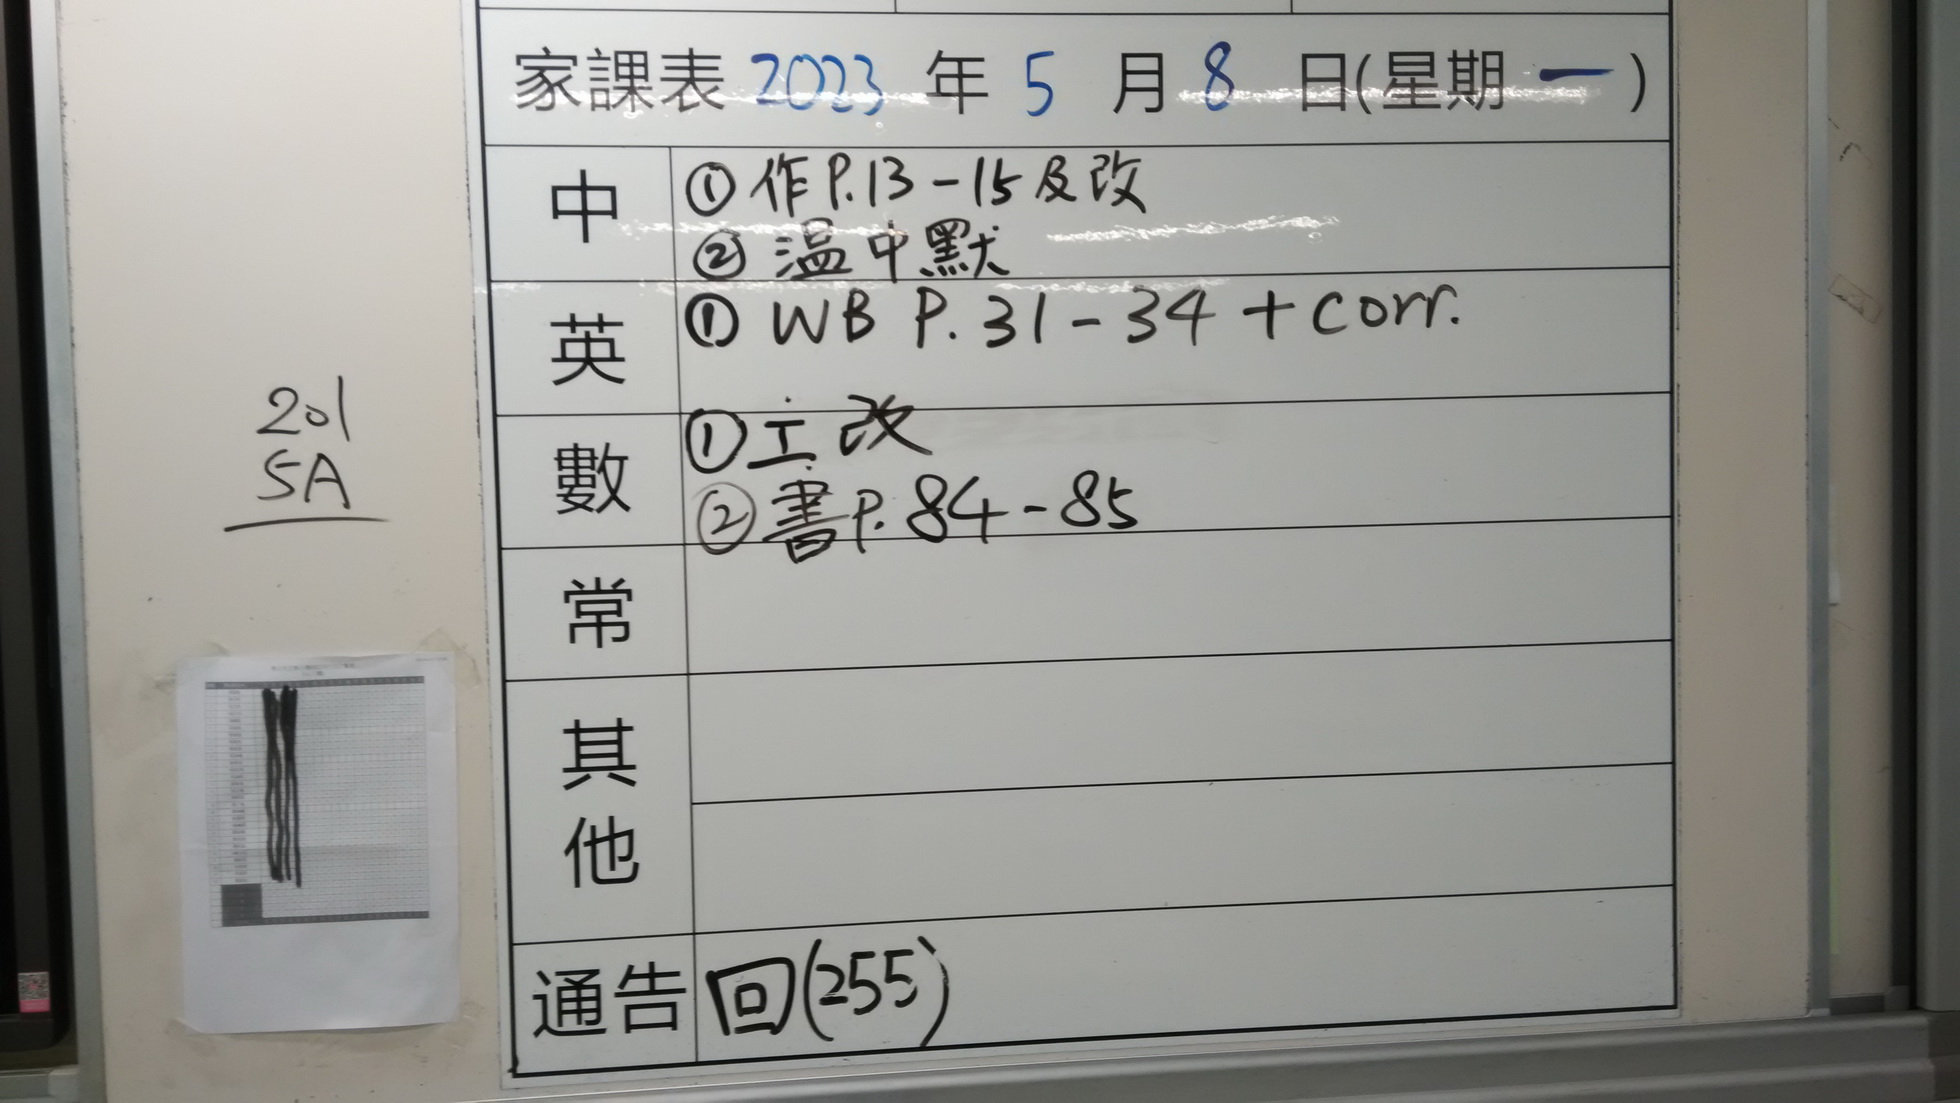 家課表 2023 年 5 月 8 日(星期 一 )
中
① 作P.13-15及改
② 溫中默
英
① WB P.31-34 + corr.
數
① 工改
② 書P.84-85
常
其他
通告
回(255)
201
5A